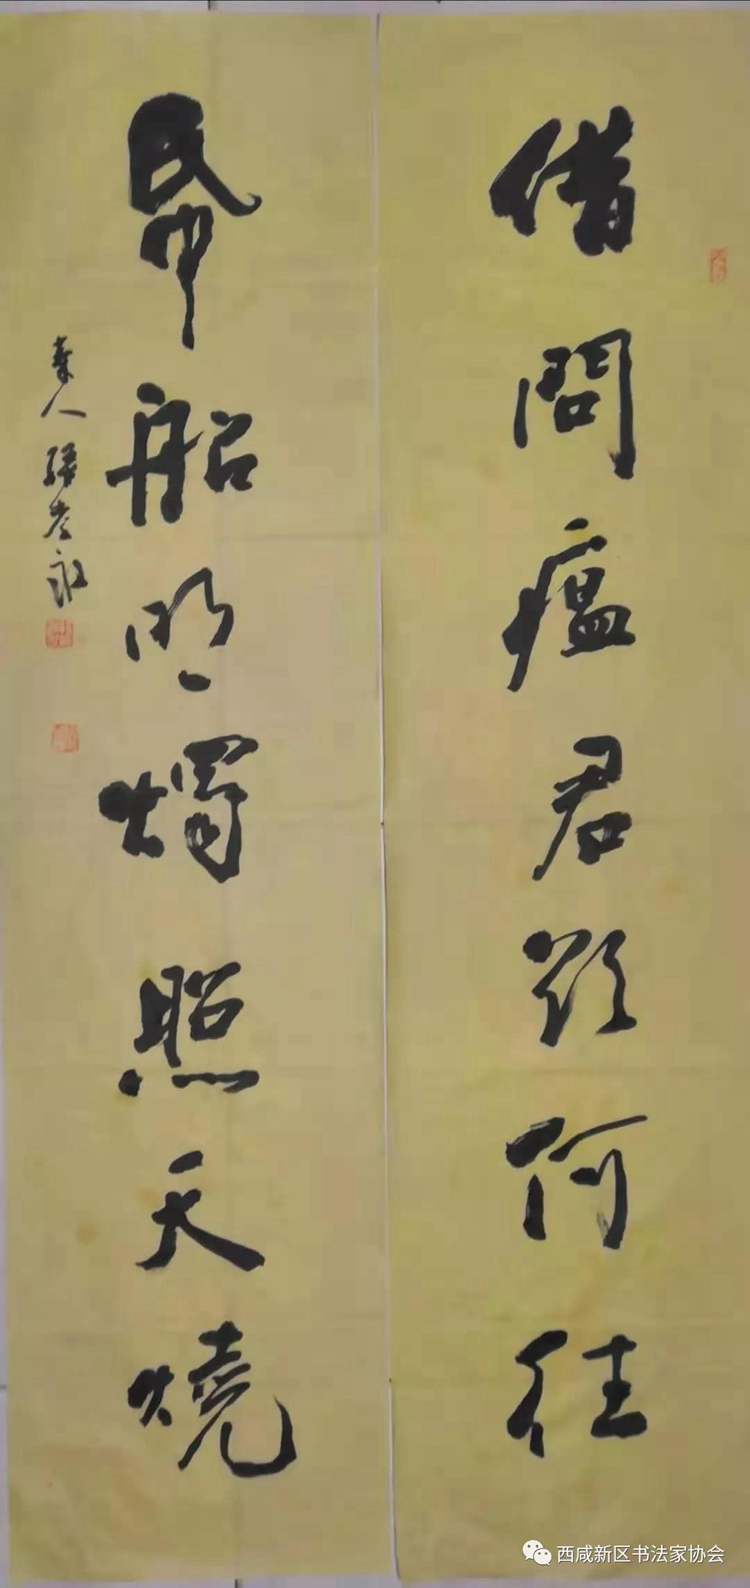 借問瘟君欲何往
帋船明燭照天燒
秦人孝永
西咸新区书法家协会